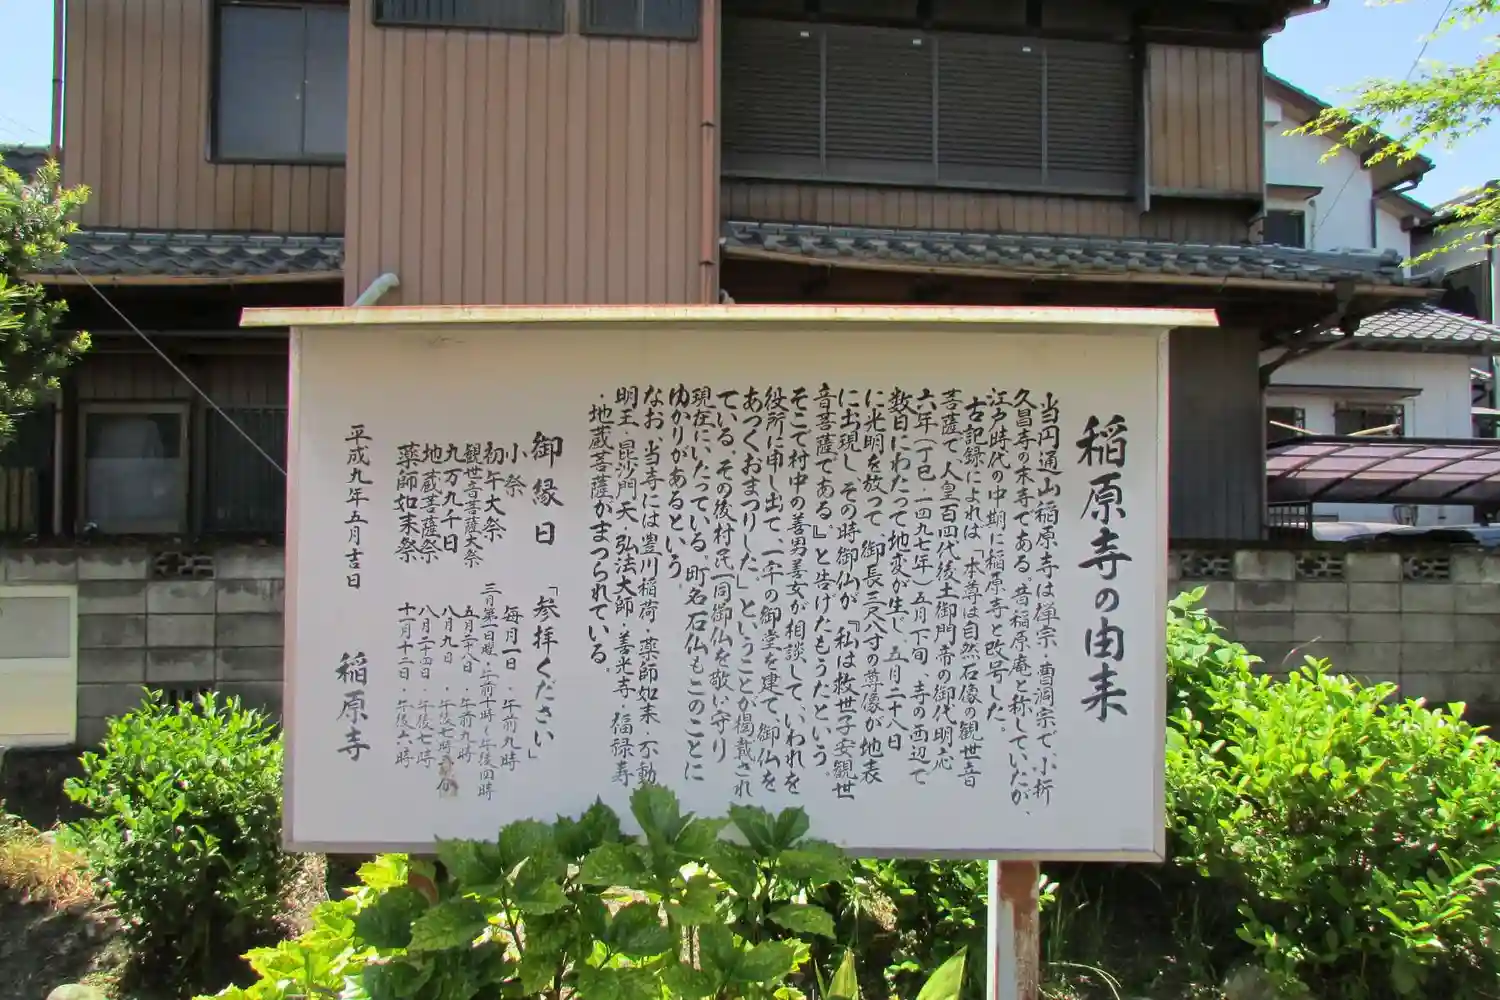 稲原寺の由来
当円通山稲原寺は禅宗・曹洞宗で、小折
久昌寺の末寺である。昔稲原庵と称していたが、
江戸時代の中期に稲原寺と改号した。
古記録によれば「本尊は自然石像の観世音
菩薩で、人皇百四代後土御門帝の御代明応
六年(丁巳・一四九七年)五月下旬、寺の西辺で
数日にわたって地変が生じ、五月二十八日
に光明を放って、御長三尺八寸の尊像が地表
に出現し、その時御仏が『私は救世子安観世
音菩薩である』と告げたもうたという。
そこで村中の善男善女が相談して、いわれを
役所に申し出て、一宇の御堂を建て、御仏を
あつくおまつりした」ということが掲載され
ている。その後村民一同御仏を敬い守り
現在にいたっている。町名石仏もこのことに
ゆかりがあるという。
なお、当寺には豊川稲荷・薬師如来・不動
明王・毘沙門天・弘法大師・善光寺・福禄寿
・地蔵菩薩がまつられている。
御縁日 「参拝ください」
小祭 毎月一日・午前九時
初午大祭 三月第一日曜・午前十時〜午後四時
観世音菩薩大祭 五月二十八日・午前九時
九万九千日 八月九日・午後七時
地蔵菩薩祭 八月二十四日・午後七時
薬師如来祭 十一月十二日・午後六時
平成九年五月吉日
稲原寺